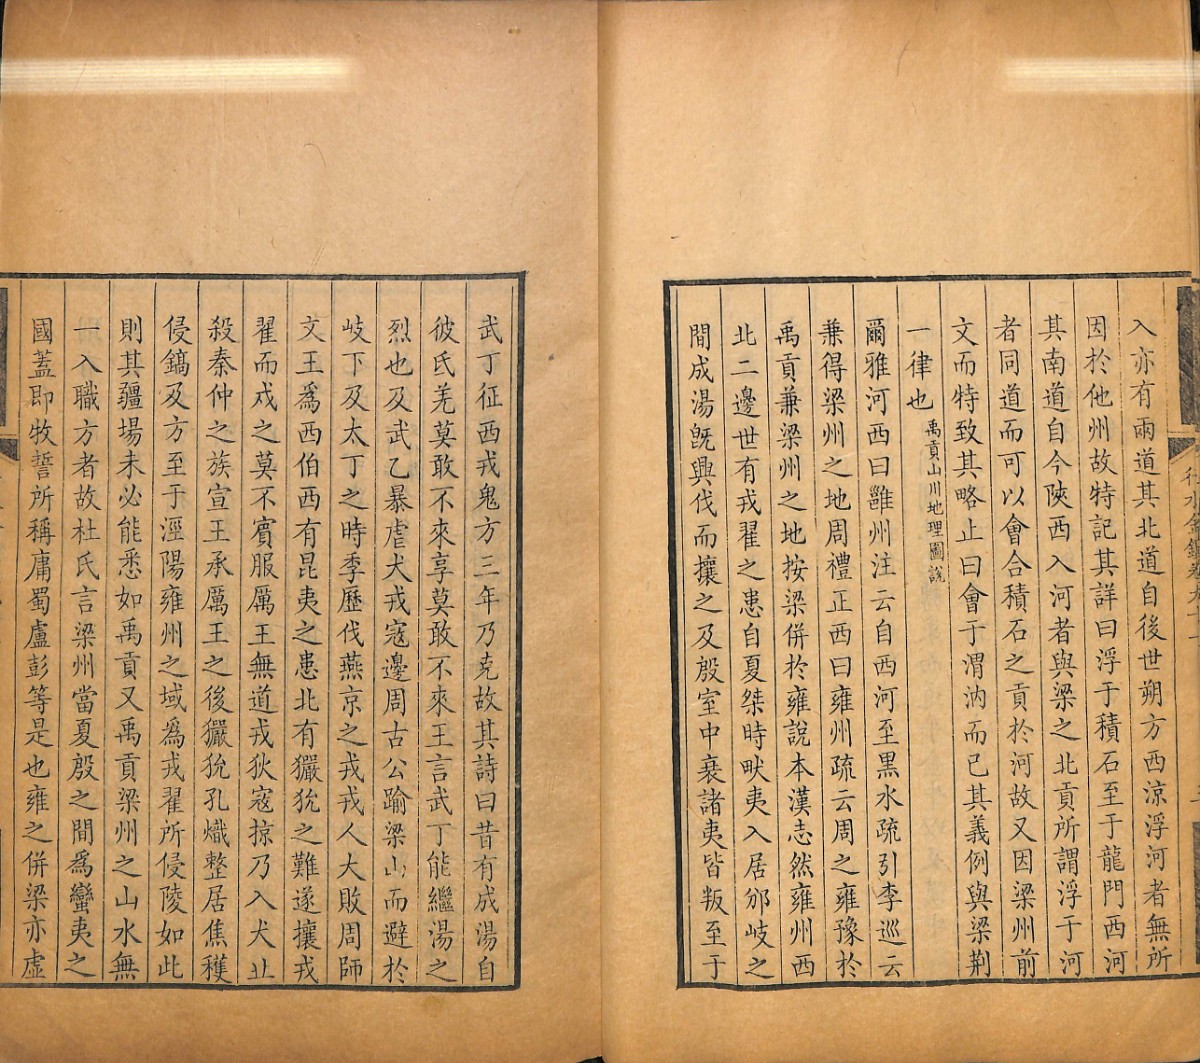 入亦有兩道其北道自後世朔方西涼浮河者無所
因於他州故特記其詳曰浮于積石至于龍門西河
其南道自今陝西入河者與梁之北貢所謂浮于河
者同道而可以會合積石之貢於河故又因梁州前
文而特致其略止曰會于渭汭而已其義例與梁荆
一律也禹貢山川地理圖說
爾雅河西曰雝州注云自西河至黑水疏引李巡云
兼得梁州之地周禮正西曰雍州疏云周之雍豫於
禹貢兼梁州之地按梁併於雍說本漢志然雍州西
北二邊世有戎翟之患自夏桀時畎夷入居邠岐之
間成湯旣興伐而攘之及殷室中衰諸夷皆叛至于
武丁征西戎鬼方三年乃克故其詩曰昔有成湯自
彼氐羌莫敢不來享莫敢不來王言武丁能繼湯之
烈也及武乙暴虐犬戎寇邊周古公踰梁山而避於
岐下及太丁之時季歷伐燕京之戎戎人大敗周師
文王爲西伯西有昆夷之患北有玁狁之難遂攘戎
翟而戍之莫不賓服厲王無道戎狄寇掠乃入犬丘
殺秦仲之族宣王承厲王之後玁狁孔熾整居焦穫
侵鎬及方至于涇陽雍州之域爲戎翟所侵陵如此
則其疆場未必能悉如禹貢又禹貢梁州之山水無
一入職方者故杜氏言梁州當夏殷之間爲蠻夷之
國蓋即牧誓所稱庸蜀盧彭等是也雍之併梁亦虛